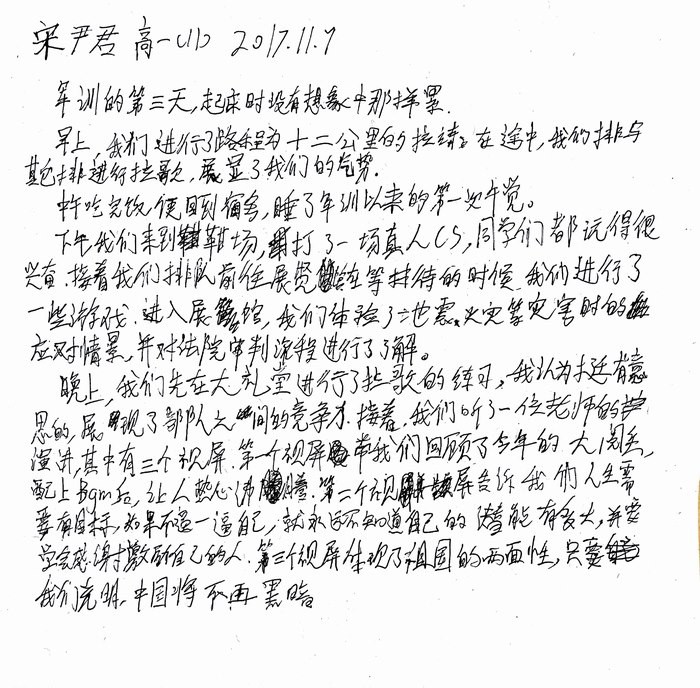 宋尹君 高一(1) 2017.11.7
军训的第三天,起床时没有想象中那样累.
早上,我们进行了路程为十二公里的拉练。在途中,我的排与
其它排进行拉歌,展显了我们的气势.
中午吃完饭便回到宿舍,睡了军训以来的第一次午觉。
下午我们来到靶场,打了一场真人CS,同学们都玩得很
兴奋.接着我们排队前往展览馆在等待的时候,我们进行了
一些游戏.进入展馆,我们体验了地震、火灾等灾害时的
应对情景,并对法院审判流程进行了了解。
晚上,我们先在大礼堂进行了拉歌的练习,我认为挺有意
思的,展现了部队之间的竞争力.接着,我们听了一位老师的
演讲,其中有三个视屏.第一个视屏带我们回顾了今年的大阅兵,
配上Bgm后,让人热心沸腾.第二个视屏告诉我们人生需
要有目标,如果不逼一逼自己,就永远不知道自己的潜能有多大,并要
学会感谢打激励自己的人.第三个视屏体现了祖国的两面性,只要
我们光明,中国将不再黑暗